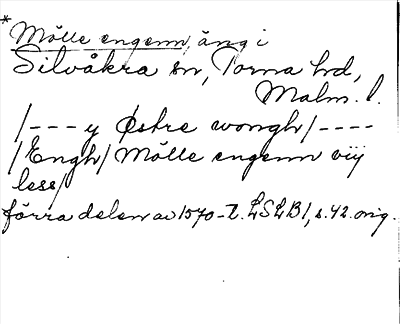 * Mölle engenn, äng i
Silvåkra sn, Torna hd,
Malm. l.
/--- y Østre wongh/----
/Engh/ Mölle engenn viij
less/
förra delen av 1570-t. LSLB 1, s. 42. orig.